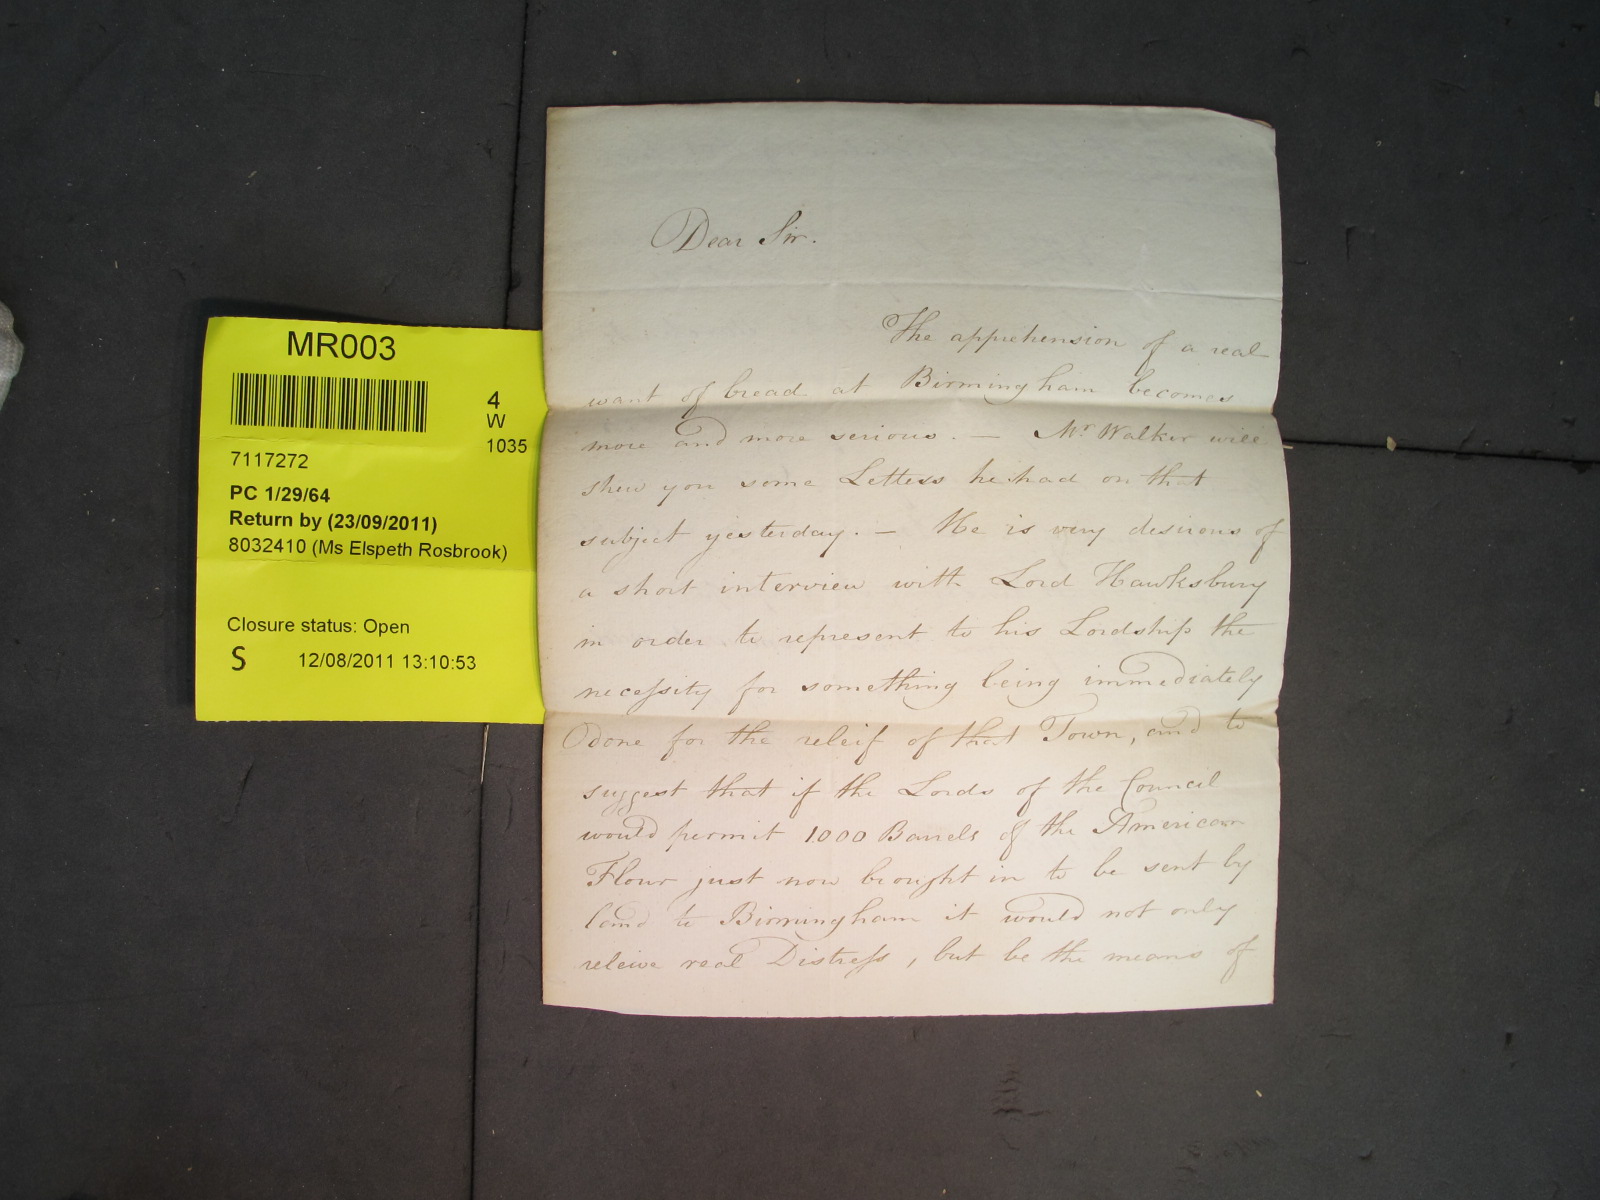 MR003
4
W
1035
7117272
PC 1/29/64
Return by (23/09/2011)
8032410 (Ms Elspeth Rosbrook)
Closure status: Open
S 12/08/2011 13:10:53
Dear Sir.
The apprehension of a real
want of bread at Birmingham becomes
more and more serious. — Mr Walker will
shew you some Letters he had on that
subject yesterday. — He is very desirous of
a short interview with Lord Hawksbury
in order to represent to his Lordship the
necessity for something being immediately
done for the releif of that Town, and to
suggest that if the Lords of the Council
would permit 1000 Barrels of the American
Flour just now brought in to be sent by
land to Birmingham it would not only
releive real Distress, but be the means of